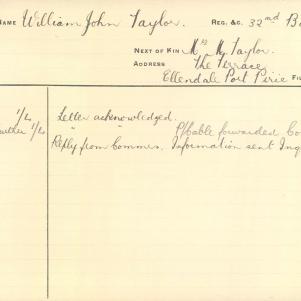 NAME William John Taylor. REG. &C. 32nd B
NEXT OF KIN Mrs M. Taylor.
ADDRESS The Terrace,
Ellendale Port Pirie
1/4 Letter acknowledged.
1/4 P/Cable forwarded Co
Reply from Commrs. Information sent Inq